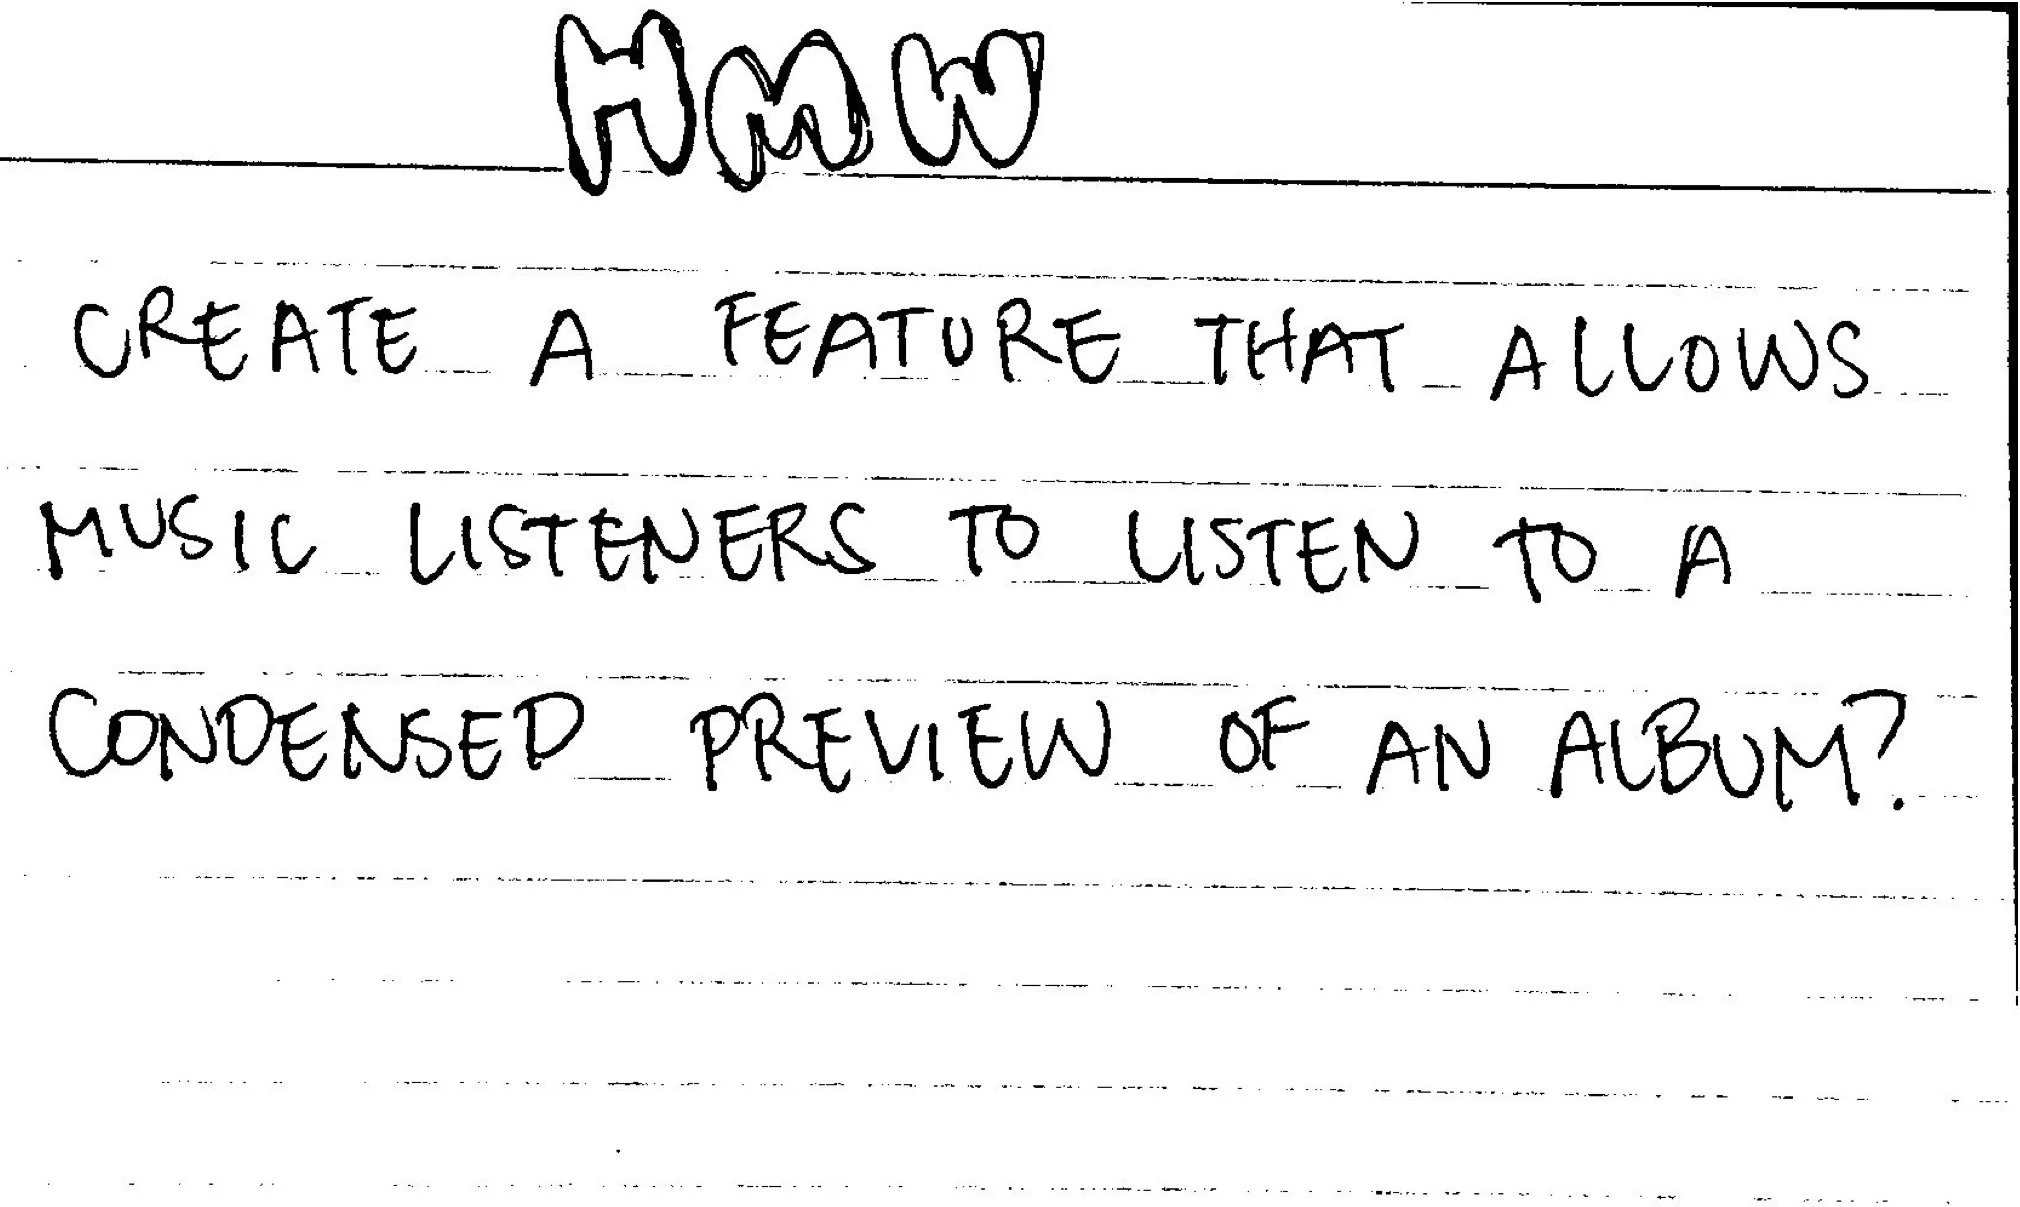 HMW
CREATE A FEATURE THAT ALLOWS
MUSIC LISTENERS TO LISTEN TO A
CONDENSED PREVIEW OF AN ALBUM?